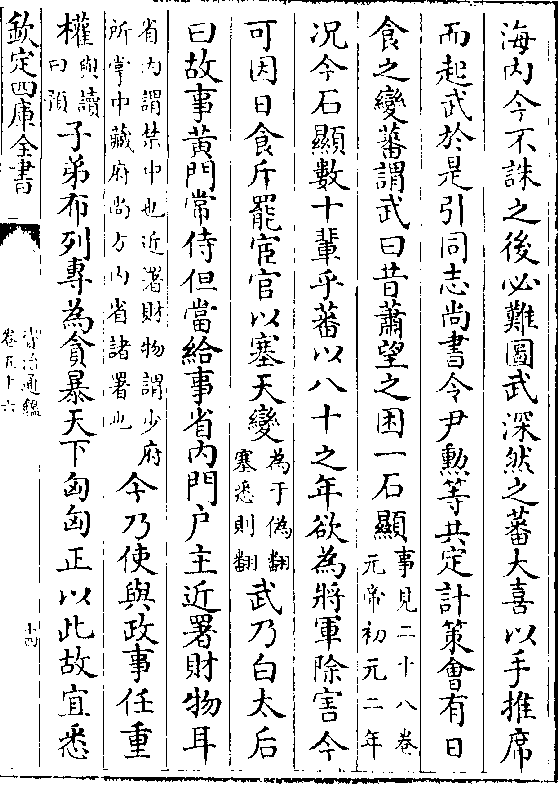 海内今不誅之後必難圖武深然之蕃大喜以手推席
而起武於是引同志尚書令尹勲等共定計策會有日
食之變蕃謂武曰昔蕭望之困一石顯事見二十八卷
元帝初元二年
況今石顯數十輩乎蕃以八十之年欲為將軍除害今
可因日食斥罷宦官以塞天變為于偽翻
塞悉則翻武乃白太后
曰故事黄門常侍但當給事省内門户主近署財物耳
省内謂禁中也近署財物謂少府
所掌中藏府尚方内省諸署也今乃使與政事任重
權與讀
曰預子弟布列專為貪暴天下匈匈正以此故宜悉
欽定四庫全書
資治通鑑
卷五十六
十四